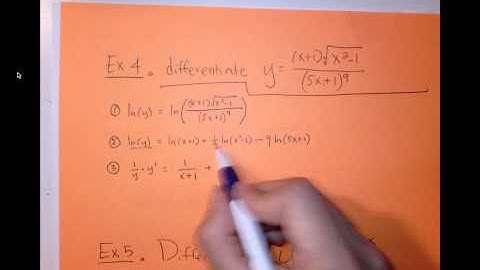 Ex.4. differentiate y = (x+1)√(x²-1) / (5x+1)⁹
① ln(y) = ln((x+1)√(x²-1) / (5x+1)⁹)
② ln(y) = ln(x+1) + ½ ln(x²-1) - 9 ln(5x+1)
③ 1/y · y' = 1/(x+1) +
Ex.5.